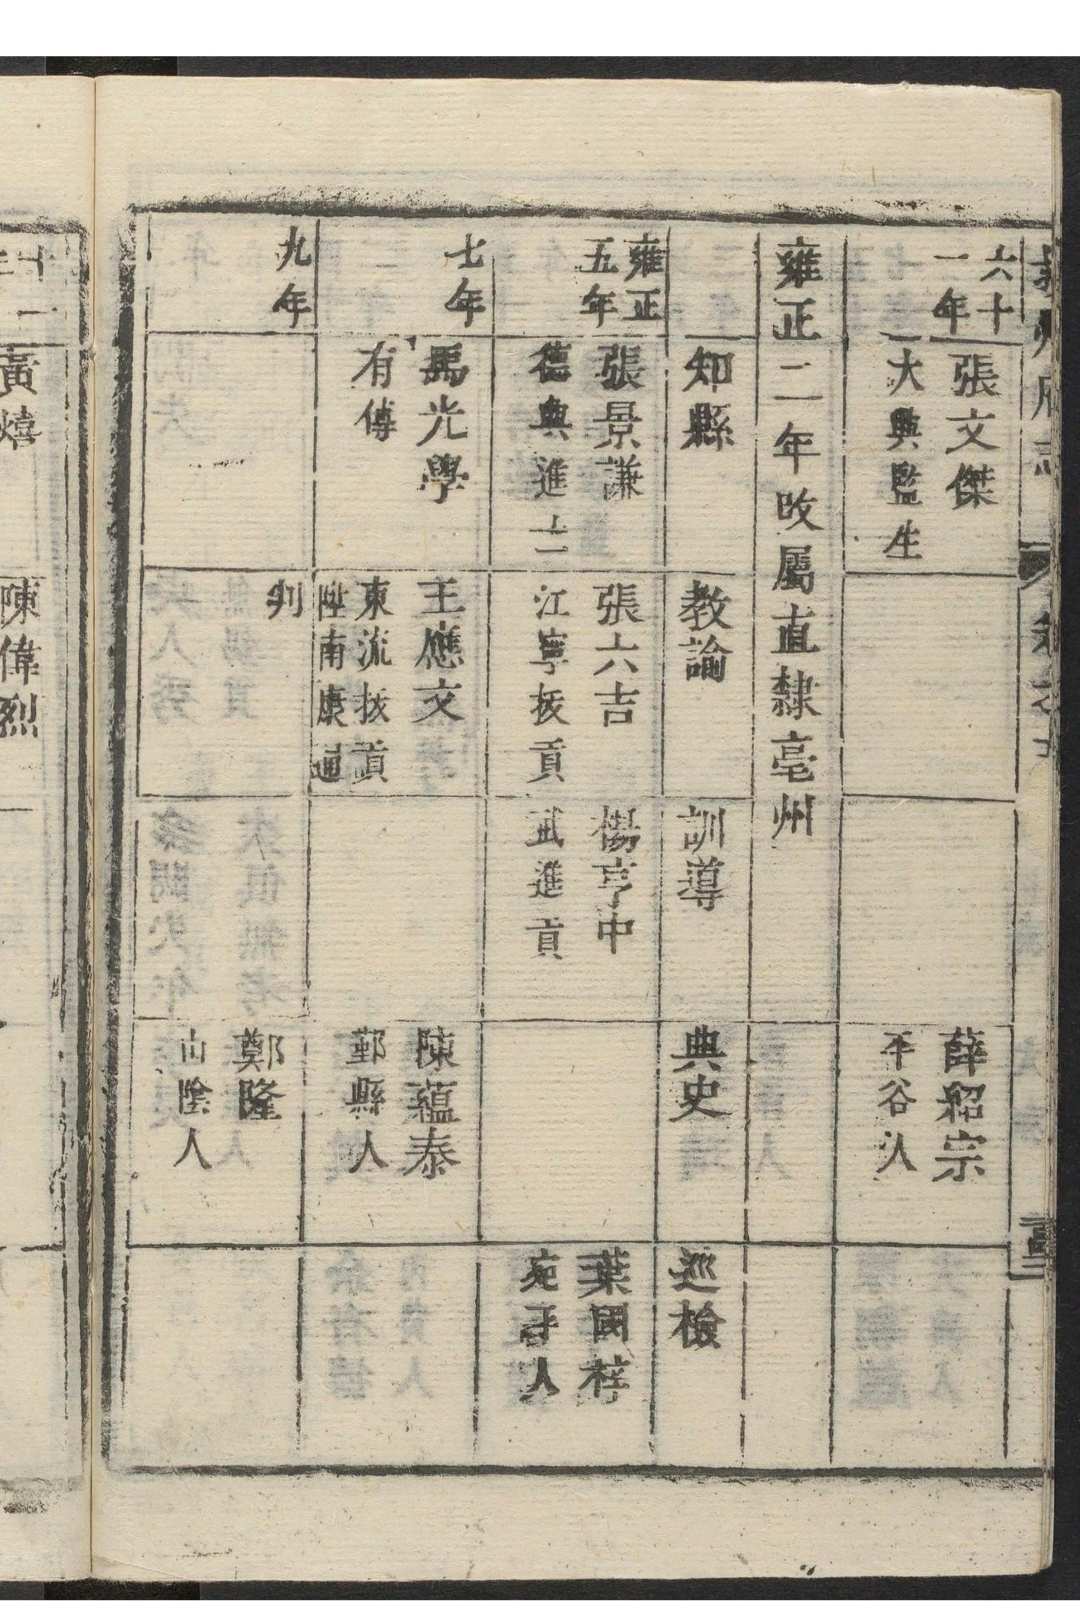 六十
一年
張文傑
大興監生
薛紹宗
平谷人
雍正二年改屬直隸亳州
知縣
教諭
訓導
典史
巡檢
雍正
五年
張景謙
德興進士
張六吉
江寧拔貢
楊亨中
武進貢
葉國梓
宛平人
七年
禹光學
有傳
王應文
東流拔貢
陞南康通
判
陳蘊泰
鄞縣人
九年
鄭隆
山陰人
陳偉烈